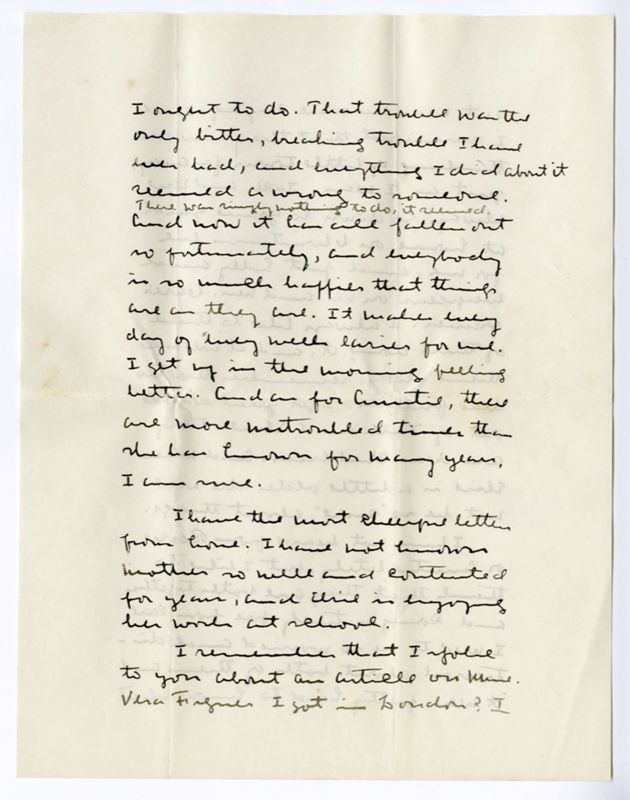 I ought to do. That trouble was the
only bitter, breaking trouble I have
ever had, and everything I did about it
seemed as wrong to someone.
There was simply nothing to do, it seemed.
And now it has all fallen out
so fortunately, and everybody
is so much happier that things
are as they are. It makes every
day of my week easier for me.
I get up in the morning feeling
better. And as for Auntie, there
are more untroubled times than
she has known for many years,
I am sure.
I have the most cheerful letters
from home. I have not known
mother so well and contented
for years, and Elsie is enjoying
her work at school.
I remember that I spoke
to you about an article on Mme.
Vera Figner I got in London? I